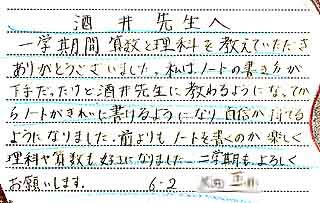 酒井先生へ
一学期間算数と理科を教えていただき
ありがとうございました。私はノートの書き方が
下手だったけど酒井先生に教わるようになってか
らノートがきれいに書けるようになり自信が持てる
ようになりました。前よりもノートを書くのが楽しく
理科や算数も好きになりました。二学期もよろしく
お願いします。 6-2